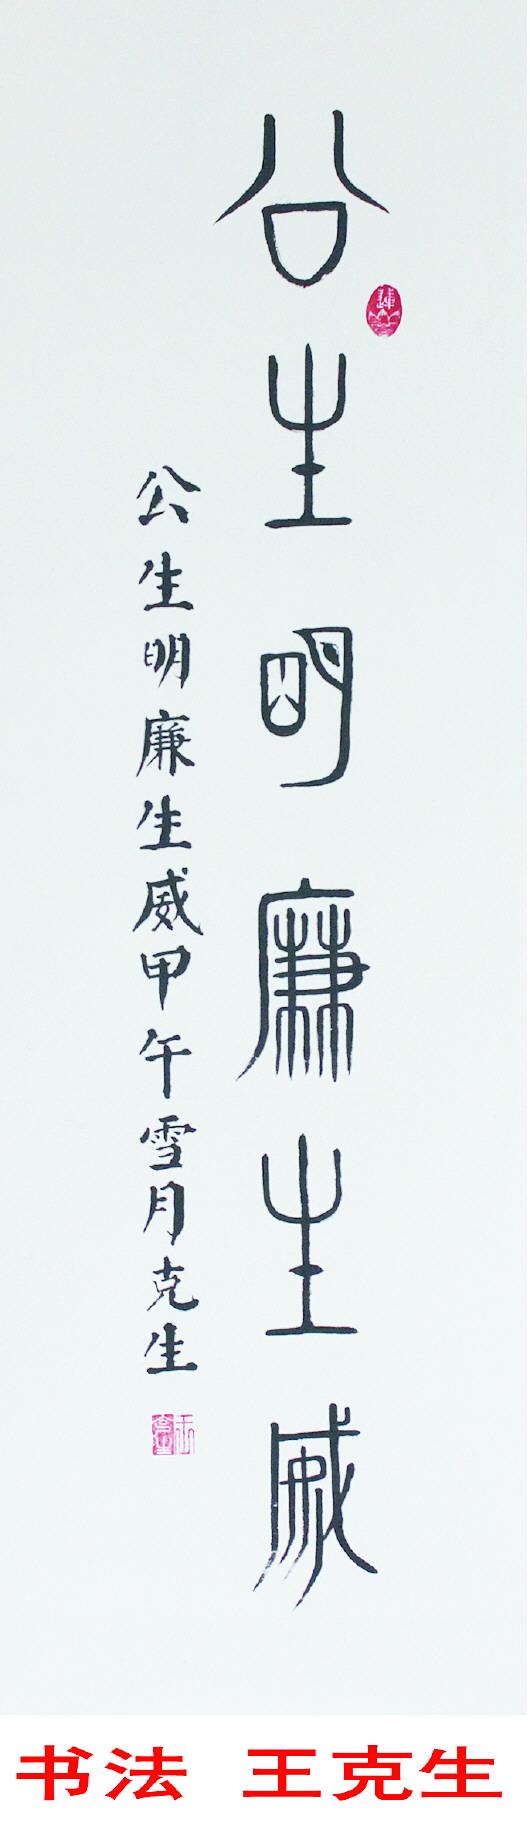 公生明廉生威
公生明廉生威甲午雪月克生
书法 王克生